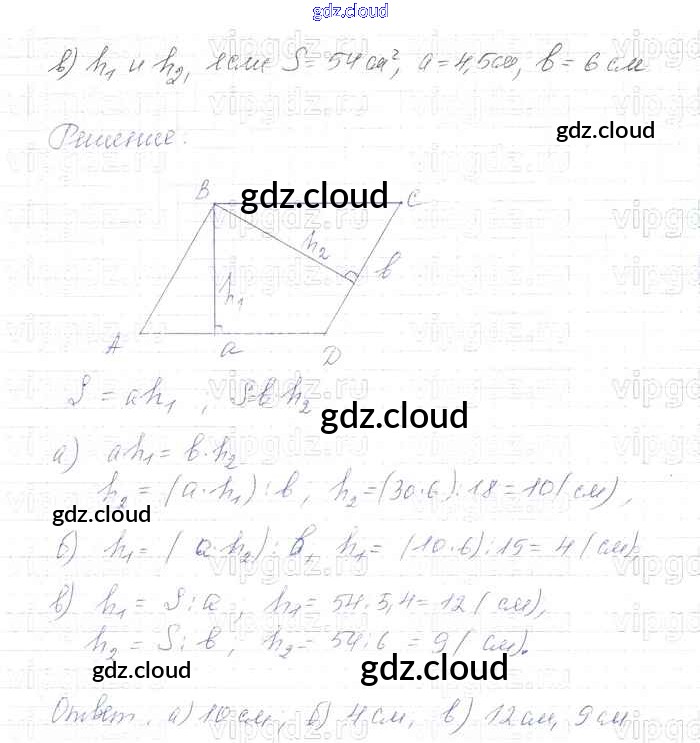 gdz.cloud
в) h₁ и h₂, если S = 54 см², a = 4,5 см, b = 6 см
Решение:
gdz.cloud
B gdz.cloud C
h₂
b
h₁
A a D
S = ah₁ ; S = b h₂
gdz.cloud
а) a·h₁ = b·h₂
h₂ = (a·h₁) : b ; h₂ = (30·6) : 18 = 10 (см),
gdz.cloud
б) h₁ = (a·h₂) : b, h₁ = (10·6) : 15 = 4 (см),
в) h₁ = S : a ; h₁ = 54 : 5,4 = 12 (см),
h₂ = S : b, h₂ = 54 : 6 = 9 (см).
gdz.cloud gdz.cloud
Ответ. а) 10 см ; б) 4 см, в) 12 см, 9 см